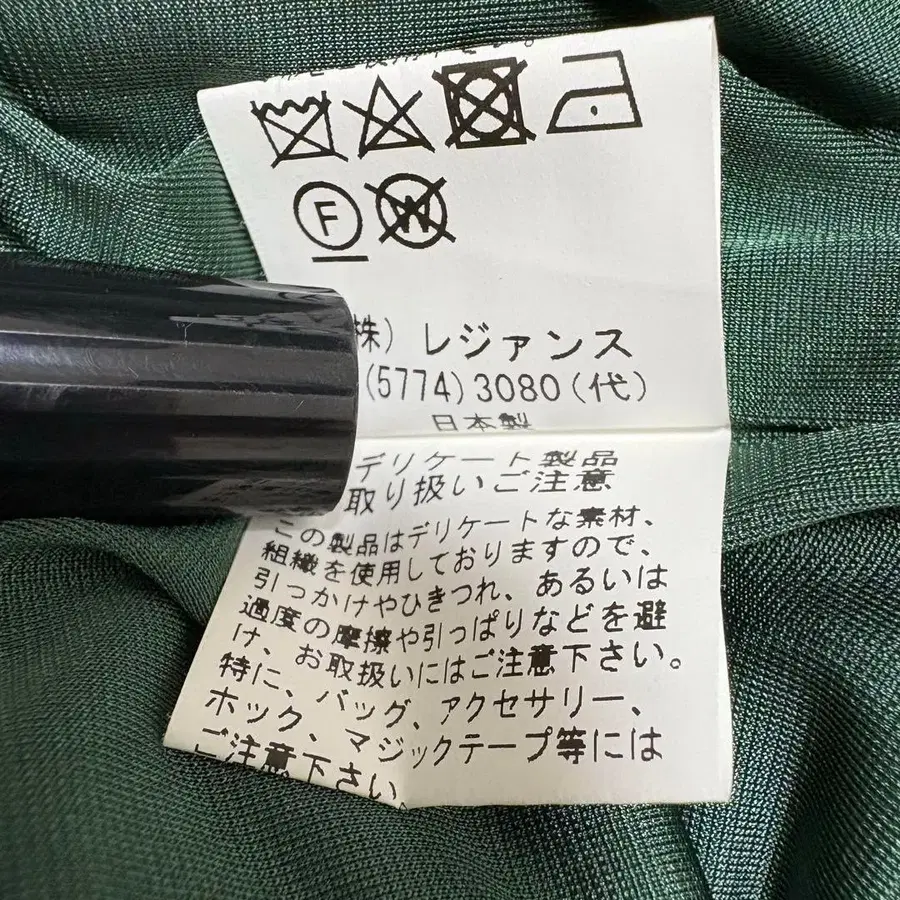 F
W
株）レジァンス
(5774)3080(代)
日本製
デリケート製品
取り扱いご注意
この製品はデリケートな素材、
組織を使用しておりますので、
引っかけやひきつれ、あるいは
過度の摩擦や引っぱりなどを避
け、お取扱いにはご注意下さい。
特に、バッグ、アクセサリー、
ホック、マジックテープ等には
ご注意下さい。